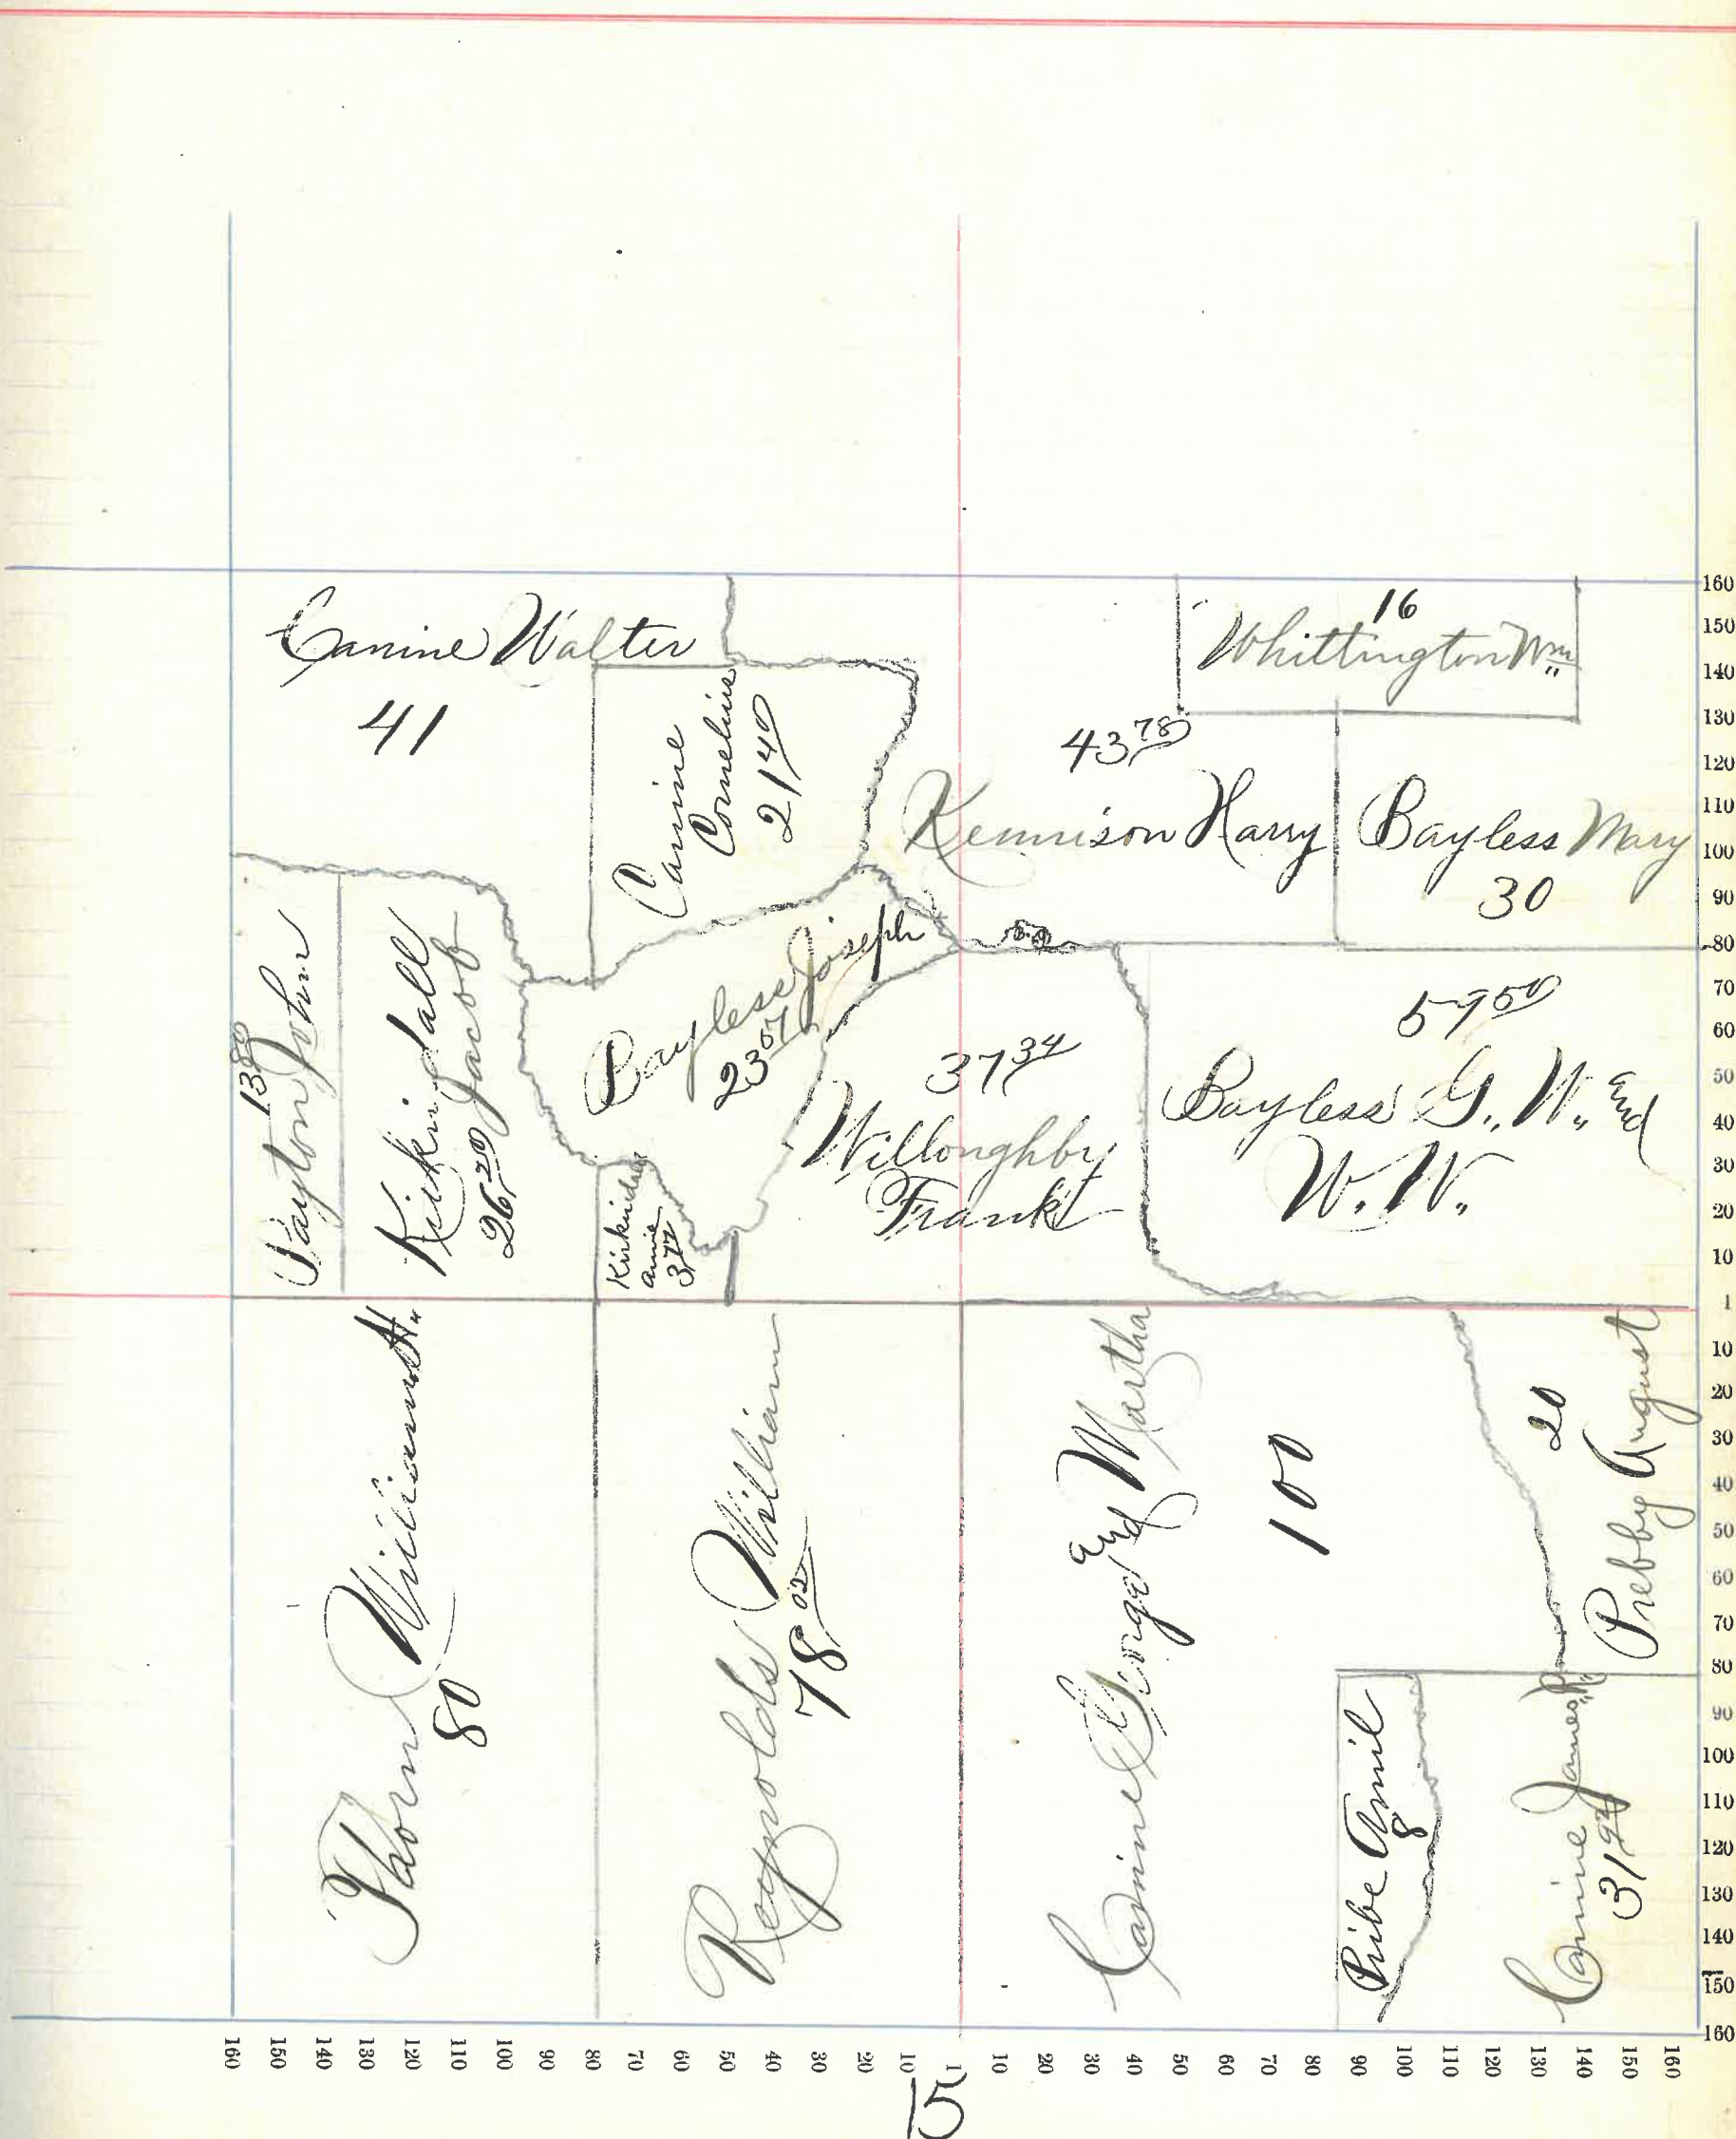 Canine Walter
41
Canine
Cornelius
21 40
16
Whittington Wm
43 78
Kennison Harry
Bayless Mary
30
Payton John
13 80
Kirkindall
Jacob
26 20
Bayless Joseph
23 07
Kirkindall
annie
3 72
37 34
Willoughby
Frank
59 50
Bayless G. W. and
W. W.
Thorn William H.
80
Reynolds William
78 02
Canine George and Martha
100
20
Prebby August
Pribe Amil
8
Canine James R
31 92
160
150
140
130
120
110
100
90
80
70
60
50
40
30
20
10
1
10
20
30
40
50
60
70
80
90
100
110
120
130
140
150
160
160 150 140 130 120 110 100 90 80 70 60 50 40 30 20 10 1 10 20 30 40 50 60 70 80 90 100 110 120 130 140 150 160
15